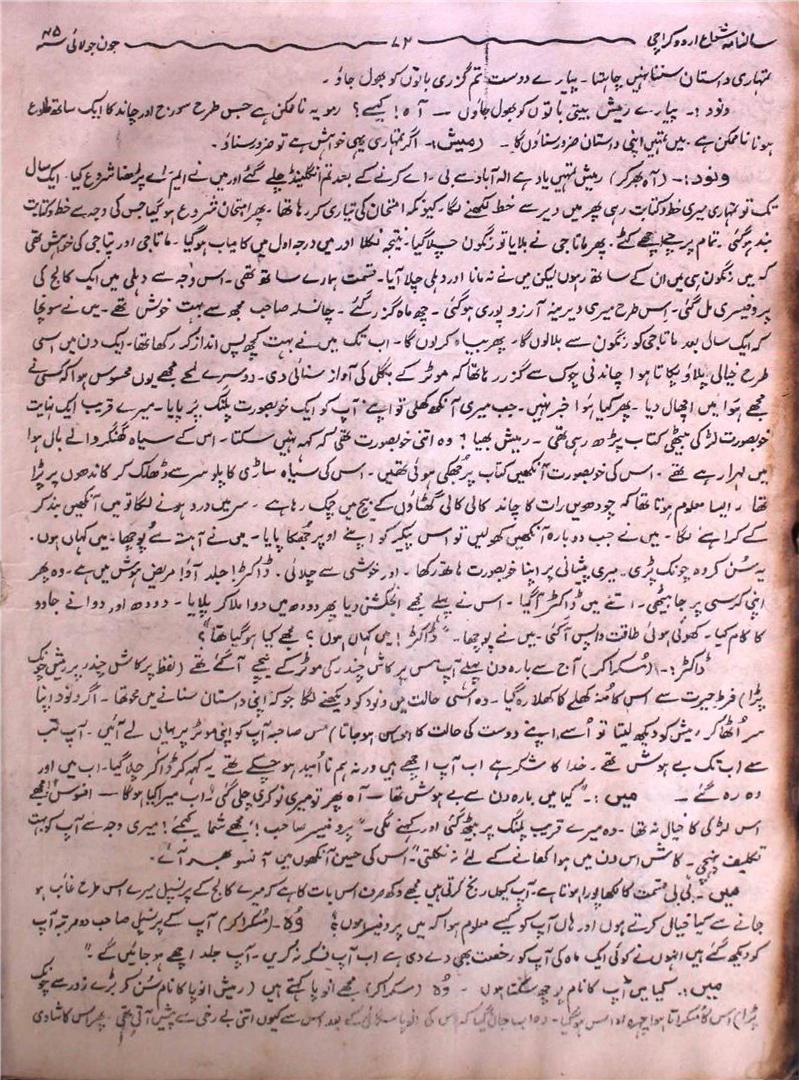 سالنامہ شعاع اردو کراچی ۷۲ جون جولائی ۴۵ء
تمہاری داستان سننا نہیں چاہتا۔ پیارے دوست تم گزری باتوں کو بھول جاؤ۔
ونود :۔ پیارے رمیش بیتی باتوں کو بھول جاؤں — آہ! کیسے؟ رمو یہ ناممکن ہے جس طرح سورج اور چاند کا ایک ساتھ طلوع
ہونا ناممکن ہے۔ میں تمہیں اپنی داستان ضرور سناؤں گا۔ (رمیش)۔ اگر تمہاری یہی خواہش ہے تو ضرور سناؤ۔
ونود :۔ (آہ بھر کر) رمیش تمہیں یاد ہے الہ آباد سے بی۔ اے کرنے کے بعد تم انگلینڈ چلے گئے اور میں نے ایم۔ اے پڑھنا شروع کیا۔ ایک سال
تک تو تمہاری میری خط و کتابت رہی پھر میں دیر سے خط لکھنے لگا۔ کیونکہ امتحان کی تیاری کر رہا تھا۔ پھر امتحان شروع ہو گیا جس کی وجہ سے خط و کتابت
بند ہو گئی۔ تمام پرچے اچھے کئے۔ پھر ماتا جی نے بلایا تو رنگون چلا گیا۔ نتیجہ نکلا اور میں درجہ اول میں کامیاب ہو گیا۔ ماتا جی اور پتا جی کی خواہش تھی
کہ میں رنگون ہی میں ان کے ساتھ رہوں لیکن میں نے نہ مانا اور دہلی چلا آیا۔ قسمت ہمارے ساتھ تھی۔ اس وجہ سے دہلی میں ایک کالج کی
پروفیسری مل گئی۔ اس طرح میری دیرینہ آرزو پوری ہو گئی۔ چھ ماہ گزر گئے۔ چانسلر صاحب مجھ سے بہت خوش تھے۔ میں نے سوچا
کہ ایک سال بعد ماتا جی کو رنگون سے بلا لوں گا۔ پھر بیاہ کر لوں گا۔ اب تک میں نے بہت کچھ پس انداز کر رکھا تھا۔ ایک دن میں اسی
طرح خیالی پلاؤ پکاتا ہوا چاندنی چوک سے گزر رہا تھا کہ موٹر کے بگل کی آواز سنائی دی۔ دوسرے لمحے مجھے یوں محسوس ہوا کہ کسی نے
مجھے ہوا میں اچھال دیا۔ پھر کیا ہوا خبر نہیں۔ جب میری آنکھ کھلی تو اپنے آپ کو ایک خوبصورت پلنگ پر پایا۔ میرے قریب ایک نہایت
خوبصورت لڑکی بیٹھی کتاب پڑھ رہی تھی۔ رمیش بھیا! وہ اتنی خوبصورت تھی کہ کہہ نہیں سکتا۔ اس کے سیاہ گھنگر والے بال ہوا
میں لہرا رہے تھے۔ اس کی خوبصورت آنکھیں کتاب پر جھکی ہوئی تھیں۔ اس کی سیاہ ساڑی کا پلو سر سے ڈھلک کر کاندھوں پر پڑا
تھا۔ ایسا معلوم ہوتا تھا کہ چودھویں رات کا چاند کالی کالی گھٹاؤں کے بیچ میں چمک رہا ہے۔ سر میں درد ہونے لگا تو میں آنکھیں بند کر
کے کراہنے لگا۔ میں نے جب دوبارہ آنکھیں کھولیں تو اس پیکر کو اپنے اوپر جھکا پایا۔ میں نے آہستہ سے پوچھا۔ میں کہاں ہوں۔
یہ سن کر وہ چونک پڑی۔ میری پیشانی پر اپنا خوبصورت ہاتھ رکھا۔ اور خوشی سے چلائی۔ ڈاکٹر! جلد آؤ! مریض ہوش میں ہے۔ وہ پھر
اپنی کرسی پر جا بیٹھی۔ اتنے میں ڈاکٹر آ گیا۔ اس نے پہلے مجھے انجکشن دیا پھر دودھ میں دوا ملا کر پلایا۔ دودھ اور دوا نے جادو
کا کام کیا۔ کھوئی ہوئی طاقت واپس آ گئی۔ میں نے پوچھا۔ "ڈاکٹر! میں کہاں ہوں؟ مجھے کیا ہو گیا تھا"؟
ڈاکٹر :۔ (مسکرا کر) آج سے بارہ دن پہلے آپ مس پرکاش چندر کی موٹر کے نیچے آ گئے تھے (لفظ پرکاش چندر پر رمیش چونک
پڑا) فرط حیرت سے اس کا منہ کھلے کا کھلا رہ گیا۔ وہ اسی حالت میں ونود کو دیکھنے لگا جو کہ اپنی داستان سنانے میں محو تھا۔ اگر ونود اپنا
سر اٹھا کر رمیش کو دیکھ لیتا تو اسے اپنے دوست کی حالت کا احساس ہو جاتا) مس صاحبہ آپ کو اپنی موٹر پر یہاں لے آئیں۔ آپ تب
سے اب تک بے ہوش تھے۔ خدا کا شکر ہے اب آپ اچھے ہیں ورنہ ہم نا امید ہو چکے تھے یہ کہہ کر ڈاکٹر چلا گیا۔ اب میں اور
وہ رہ گئے۔ میں :۔ "کیا میں بارہ دن سے بے ہوش تھا — آہ پھر تو میری نوکری چلی گئی۔ اب میرا کیا ہو گا — افسوس! مجھے
اس لڑکی کا خیال نہ تھا۔ وہ میرے قریب پلنگ پر بیٹھ گئی اور کہنے لگی۔" پروفیسر صاحب! مجھے شما کیجئے! میری وجہ سے آپ کو بہت
تکلیف پہنچی۔ کاش اس دن میں ہوا کھانے کے لئے نہ نکلتی"۔ اس کی حسین آنکھوں میں آنسو بھر آئے۔
میں۔ بی بی قسمت کا لکھا پورا ہوتا ہے۔ آپ کیوں رنج کرتی ہیں مجھے دکھ صرف اس بات کا ہے کہ میرے کالج کے پرنسپل میرے اس طرح غائب ہو
جانے سے کیا خیال کرتے ہوں اور ہاں آپ کو کیسے معلوم ہوا کہ میں پروفیسر ہوں؟ وہ۔ (مسکرا کر) آپ کے پرنسپل صاحب دو مرتبہ آپ
کو دیکھ گئے ہیں انہوں نے کوئی ایک ماہ کی آپ کو رخصت بھی دے دی ہے اب آپ فکر نہ کریں۔ آپ جلد اچھے ہو جائیں گے۔"
میں :۔ کیا میں آپ کا نام پوچھ سکتا ہوں۔ وہ (مسکرا کر) مجھے انوپا کہتے ہیں (رمیش انوپا کا نام سن کر بڑے زور سے چونک
پڑا) اس کا مسکراتا ہوا چہرہ اداس ہو گیا۔ وہ اب جان گیا کہ اس کی انوپا بعد اس سے کیوں اتنی بے رخی سے پیش آتی تھی۔ پھر اس کا شادی